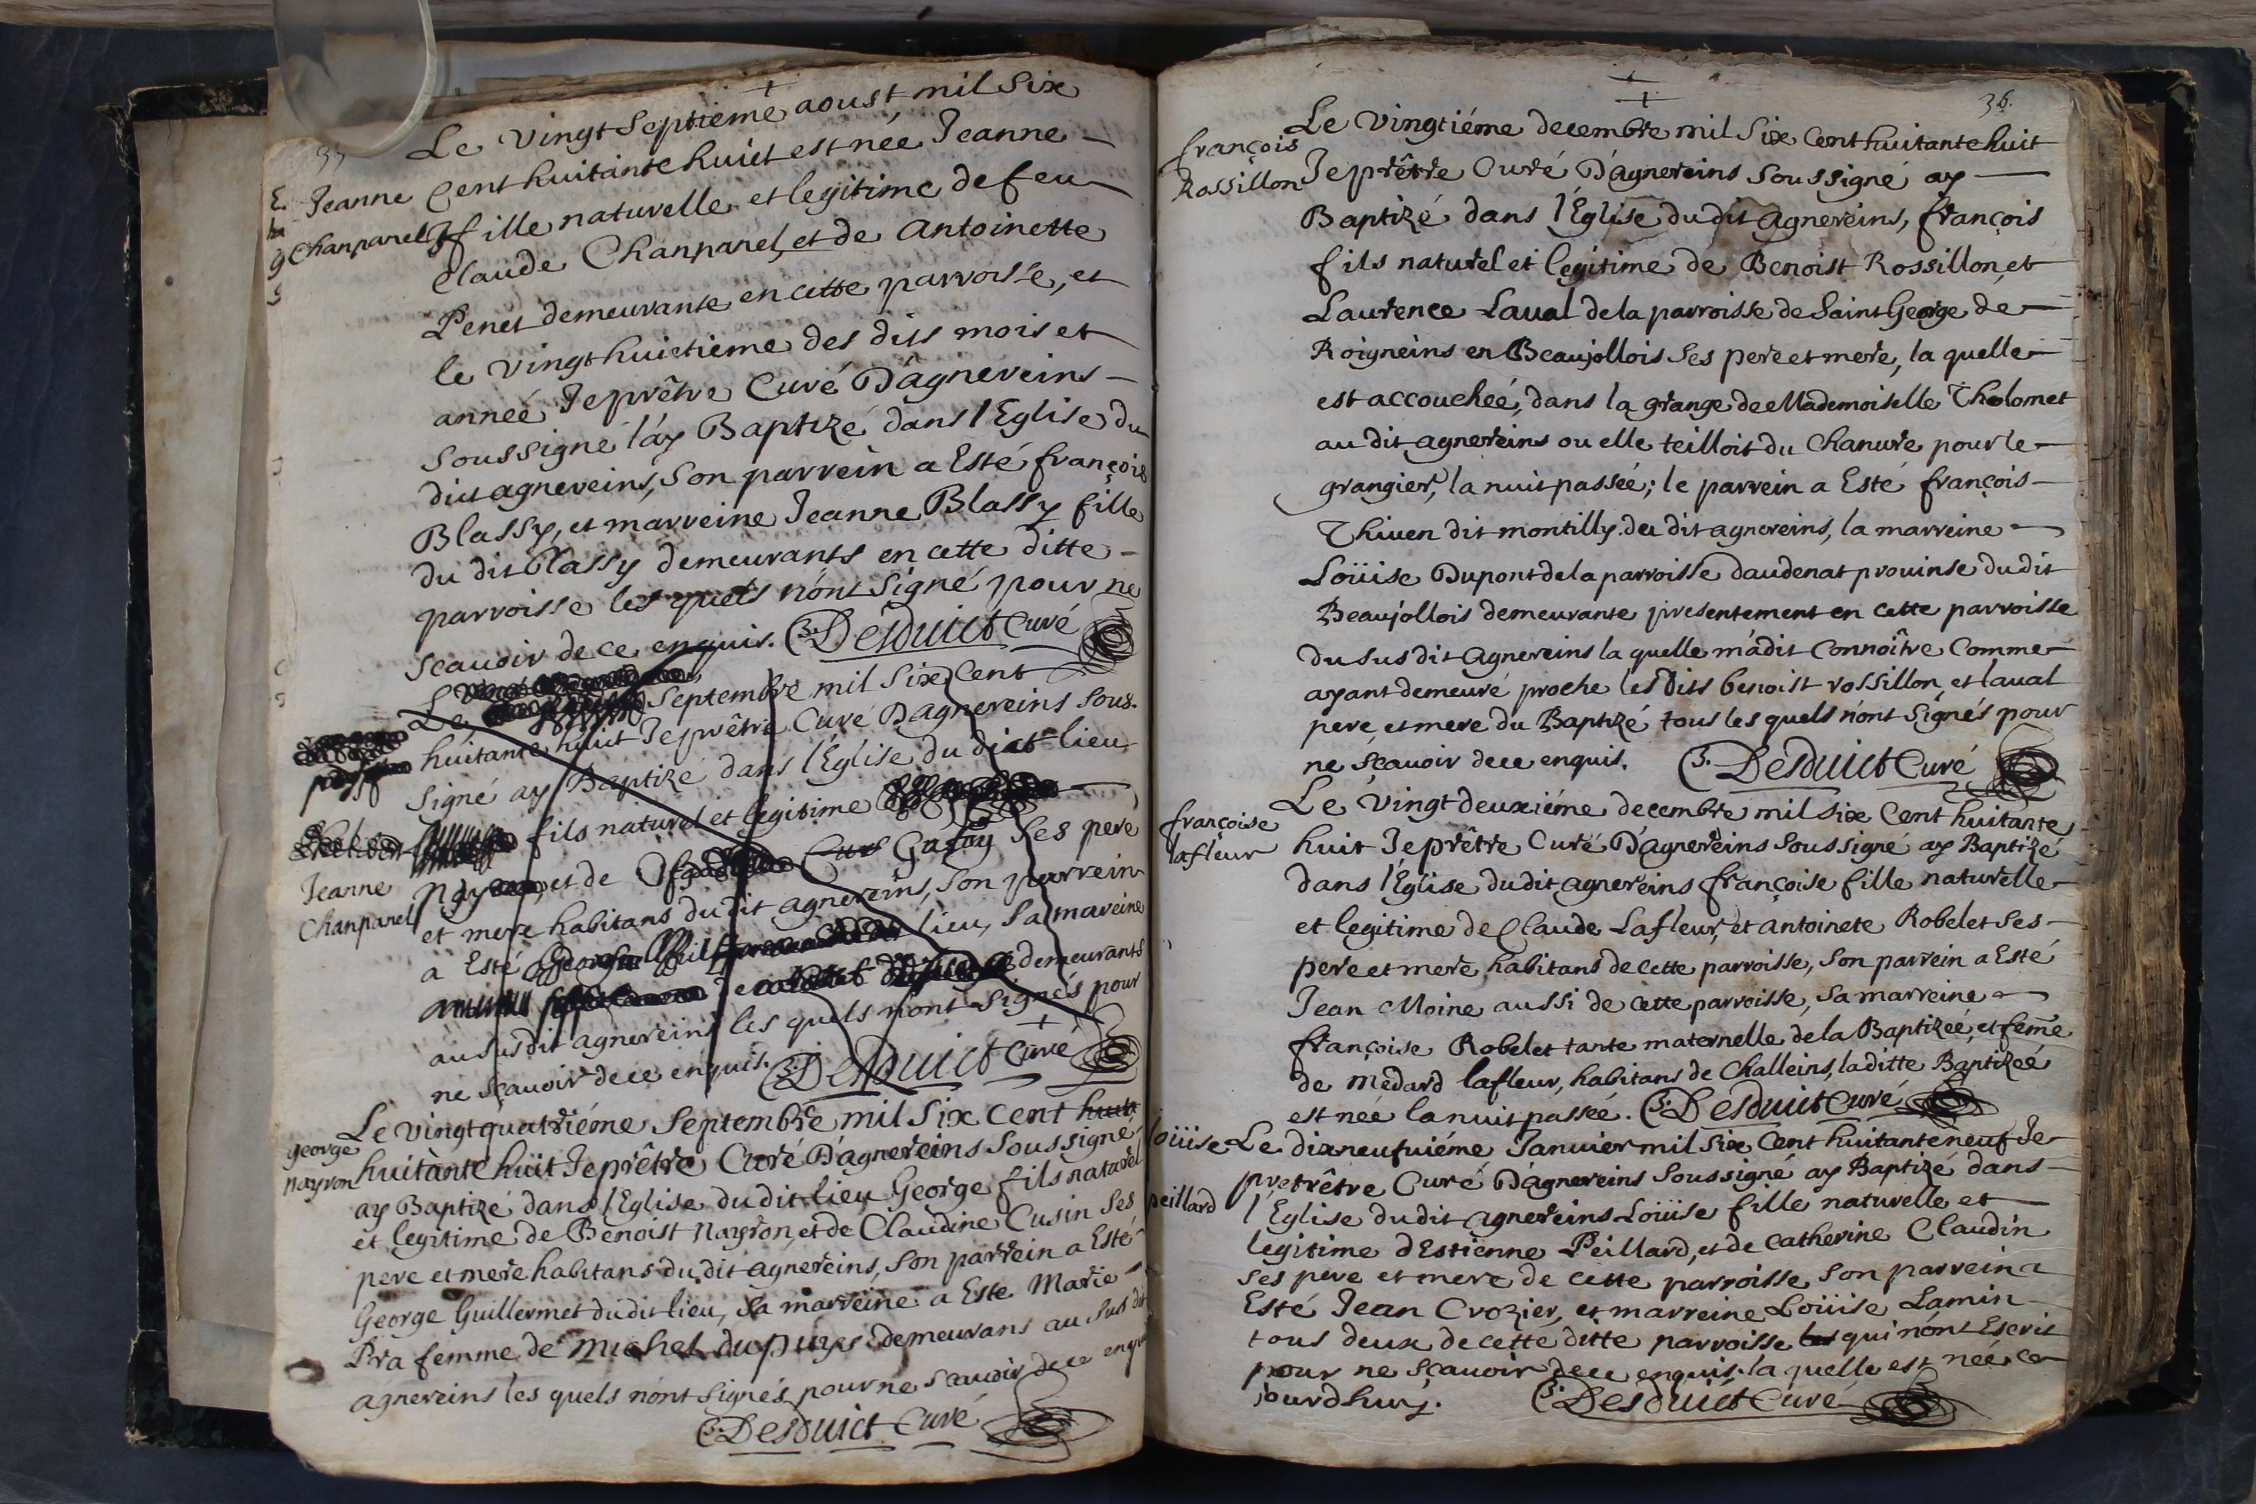 Le vingt septieme aoust mil six
Jeanne
Chanparel
cent huitante huict est née Jeanne
fille naturelle et legitime de feu
Claude Chanparel, et de antoinette
Penet demeurante en cette parroisse, et
le vingt huictieme des dits mois et
année Je prêtre Curé D'agnereins
soussigné l'ay Baptizé dans l'Eglise du
dict agnereins, son parrein a Esté françois
Blassy, et marreine Jeanne Blassy fille
du dit Blassy demeurants en cette ditte
parroisse les quels n'ont signé pour ne
scauoir de ce enquis. Desduict Curé
Le septembre mil six cent
huitante huict Je prêtre Curé D'agnereins sous
signé ay Baptizé dans l'Eglise du dict lieu
fils naturel et legitime
et de Ses pere
Jeanne
Chanparel
et mere habitans du dit agnereins, son parrein
a Esté lieu, sa mareine
demeurants
au susdit agnereins les quels n'ont signés pour
ne sçauoir de ce enquis. Desduict Curé
Le vingt quatriéme septembre mil six cent huit
george
nayron
huitante huit Je prêtre Curé D'agnereins soussigné
ay Baptizé dans l'Eglise du dit lieu George fils naturel
et legitime de Benoist nayron, et de Claudine Cusin ses
pere et mere habitans du dit agnereins, son parrein a Esté
George Guillermet du dit lieu, sa marreine a Esté Marie
Pra femme de michel dupuys demeurans au sus dit
agnereins les quels n'ont signés pour ne scauoir de ce enquis
Desduict Curé
36.
Le vingtiéme decembre mil six cent huitante huit
françois
Rossillon
Je prêtre Curé D'agnereins soussigné ay
Baptizé dans l'Eglise du dit agnereins, françois
fils naturel et legitime de Benoist Rossillon, et
Laurence Laual de la parroisse de Saint George de
Roigneins en Beaujollois ses pere et mere, la quelle
est accouchée, dans la grange de Mademoiselle Tholomet
au dit agnereins ou elle teilloit du chanure pour le
grangier, la nuit passée; le parrein a Esté françois
Thiuen dit montilly du dit agnereins, la marreine
Loüise Dupont de la parroisse daudenat prouinse du dit
Beaujollois demeurante presentement en cette parroisse
du susdit agnereins la quelle m'a dit connoître comme
ayant demeuré proche les dits benoist rossillon, et laual
pere, et mere du Baptizé tous les quels n'ont signés pour
ne sçauoir de ce enquis. Desduict Curé
Le vingt deuxiéme decembre mil six cent huitante
françoise
lafleur
huit Je prêtre Curé D'agnereins soussigné ay Baptizé
dans l'Eglise du dit agnereins françoise fille naturelle
et legitime de Claude Lafleur, et antoinete Robelet ses
pere et mere, habitans de cette parroisse, son parrein a Esté
Jean Moine aussi de cette parroisse, sa marreine
françoise Robelet tante maternelle de la Baptizée, et feme
de medard lafleur, habitans de Challeins, la ditte Baptizée
est née la nuit passée. Desduict Curé
Loüise
peillard
Le dixneufuiéme Januier mil six cent huitante neuf Je
pretrêtre Curé D'agnereins soussigné ay Baptizé dans
l'Eglise du dit agnereins Loüise fille naturelle et
legitime d'Estienne Peillard, et de catherine Claudin
ses pere et mere de cette parroisse, son parrein a
Esté Jean Crozier, et marreine Loüise Lamin
tous deux de cette ditte parroisse les qui n'ont Escrit
pour ne sçauoir de ce enquis. la quelle est née ce
jourdhuy. Desduict Curé